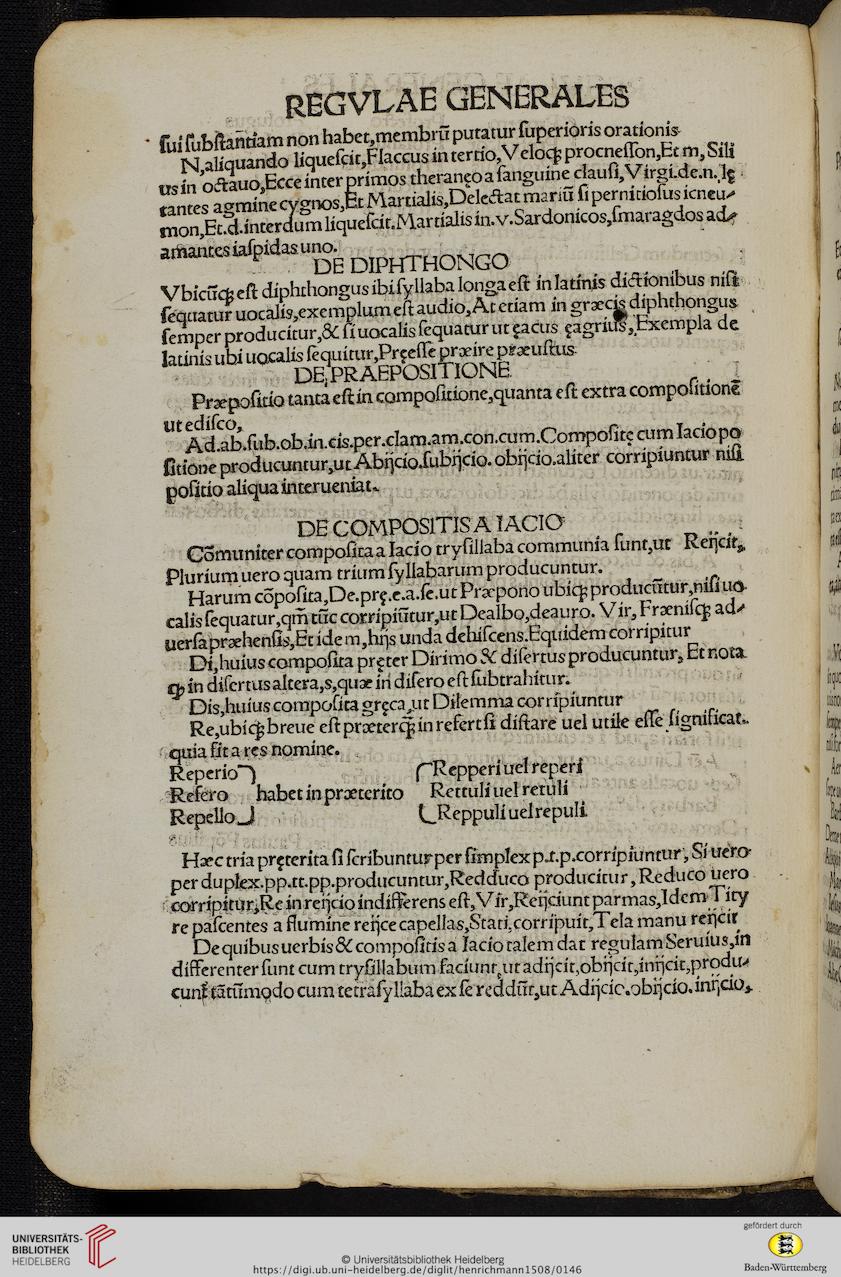 REGVLAE GENERALES
ſui ſubſtantiam non habet,membrū putatur ſuperioris orationis
N,aliquando liqueſcit,Flaccus in tertio,Veloqꝫ procneſſon,Et m, Sili
us in octauo,Ecce inter primos theranęo a ſanguine clauſi,Virgi.de.n.lę
tantes agmine cygnos,Et Martialis,Delectat mariū ſi pernitioſus icneu⸗
mon,Et.d.interdum liqueſcit.Martialis in.v.Sardonicos,ſmaragdos ad⸗
amantes iaſpidas uno.
DE DIPHTHONGO
Vbicūqꝫ eſt diphthongus ibi ſyllaba longa eſt in latinis dictionibus niſi
ſequatur uocalis,exemplum eſt audio,At etiam in græcis diphthongus
ſemper producitur,& ſi uocalis ſequatur ut ęacus ęagrius,Exempla de
latinis ubi uocalis ſequitur,Pręeſſe præire præuſtus
DE PRAEPOSITIONE
Præpoſitio tanta eſt in compoſitione,quanta eſt extra compoſitionē
ut ediſco,
Ad.ab.ſub.ob.in.cis.per.clam.am.con.cum.Compoſitę cum Iacio po
ſitione producuntur,ut Abijcio.ſubijcio. obijcio.aliter corripiuntur niſi
poſitio aliqua interueniat.
DE COMPOSITIS A IACIO
Cōmuniter compoſita a Iacio tryſillaba communia ſunt,ut Reijcit,
Plurium uero quam trium ſyllabarum producuntur.
Harum cōpoſita,De.prę.e.a.ſe.ut Præpono ubiqꝫ producūtur,niſi uo
calis ſequatur,qm̄ tūc corripiūtur,ut Dealbo,deauro. Vir, Fræniſqꝫ ad⸗
uerſa præhenſis,Et idem,hijs unda dehiſcens.Equidem corripitur
Di,huius compoſita pręter Dirimo & diſertus producuntur, Et nota
ꝙ in diſertus altera,s,quæ in diſero eſt ſubtrahitur.
Dis,huius compoſita gręca,ut Dilemma corripiuntur
Re,ubiqꝫ breue eſt præterqꝫ̄ in refert ſi diſtare uel utile eſſe ſignificat.
quia fit a res nomine.
Reperio Repperi uel reperi
Refero habet in præterito Rettuli uel retuli
Repello Reppuli uel repuli
Hæc tria pręterita ſi ſcribuntur per ſimplex p.t.p.corripiuntur, Si uero
per duplex.pp.tt.pp.producuntur,Redduco producitur, Reduco uero
corripitur,Re in reijcio indifferens eſt,Vir,Reijciunt parmas,Idem Tity
re paſcentes a flumine reijce capellas,Stati,corripuit,Tela manu reijcit
De quibus uerbis & compoſitis a Iacio talem dat regulam Seruius,in
differenter ſunt cum tryſillabum faciunt,ut adijcit,obijcit,inijcit,produ⸗
cunt tātūmodo cum tetraſyllaba ex ſe reddūt,ut Adijcio.obijcio.inijcio,
UNIVERSITÄTS-
BIBLIOTHEK
HEIDELBERG
© Universitätsbibliothek Heidelberg
https://digi.ub.uni-heidelberg.de/diglit/henrichmann1508/0146
gefördert durch
Baden-Württemberg